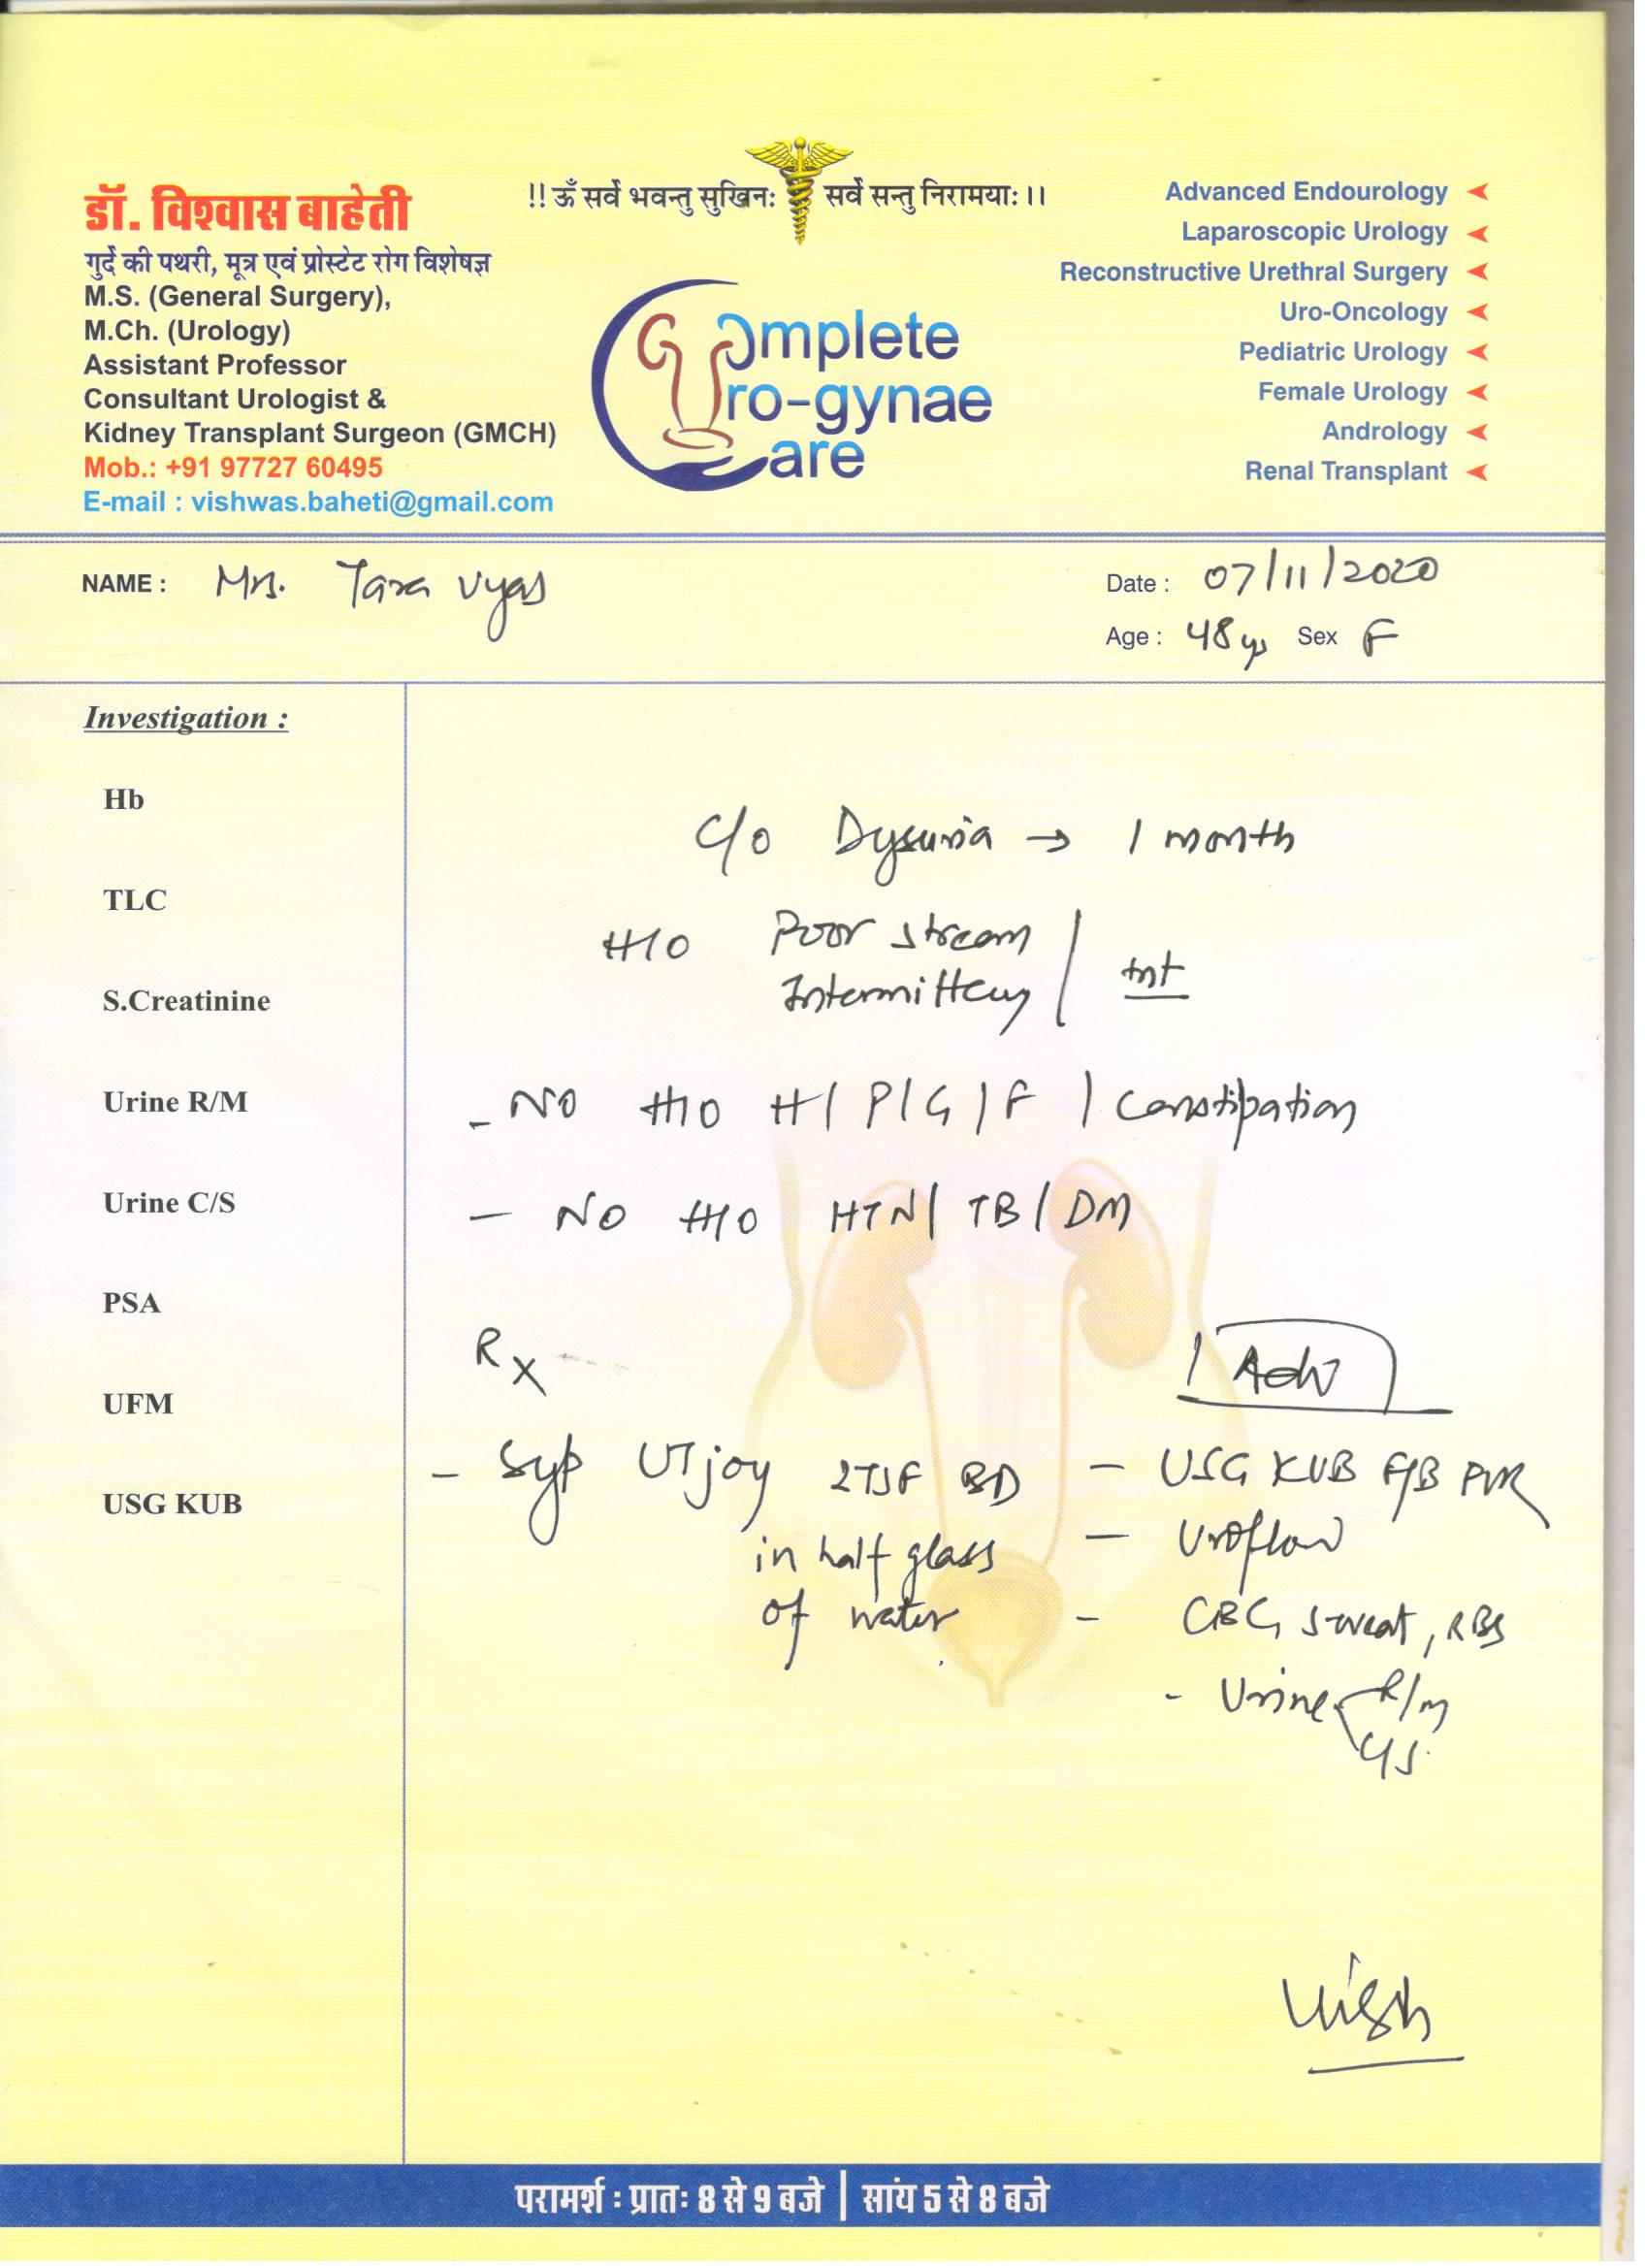 !! ॐ सर्वे भवन्तु सुखिनः सर्वे सन्तु निरामयाः ।।
डॉ. विश्वास बाहेती
गुर्दे की पथरी, मूत्र एवं प्रोस्टेट रोग विशेषज्ञ
M.S. (General Surgery),
M.Ch. (Urology)
Assistant Professor
Consultant Urologist &
Kidney Transplant Surgeon (GMCH)
Mob.: +91 97727 60495
E-mail : vishwas.baheti@gmail.com
Complete
Uro-gynae
Care
Advanced Endourology
Laparoscopic Urology
Reconstructive Urethral Surgery
Uro-Oncology
Pediatric Urology
Female Urology
Andrology
Renal Transplant
NAME : Mrs. Tara Vyas
Date : 07/11/2020
Age : 48 yrs Sex F
Investigation :
Hb
TLC
S.Creatinine
Urine R/M
Urine C/S
PSA
UFM
USG KUB
C/o Dysuria → 1 month
H/O Poor stream /
Intermittency
- NO H/O H/ P/G/F / Constipation
- NO H/O HTN/ TB/ DM
Rx
- Syp UTjoy 2TSF BD
in half glass
of water
Adv
- USG KUB F/B PVR
- Uroflow
- CBC, S-creat, RBS
- Urine R/M
C/S.
Vish
परामर्श : प्रातः 8 से 9 बजे | सांय 5 से 8 बजे